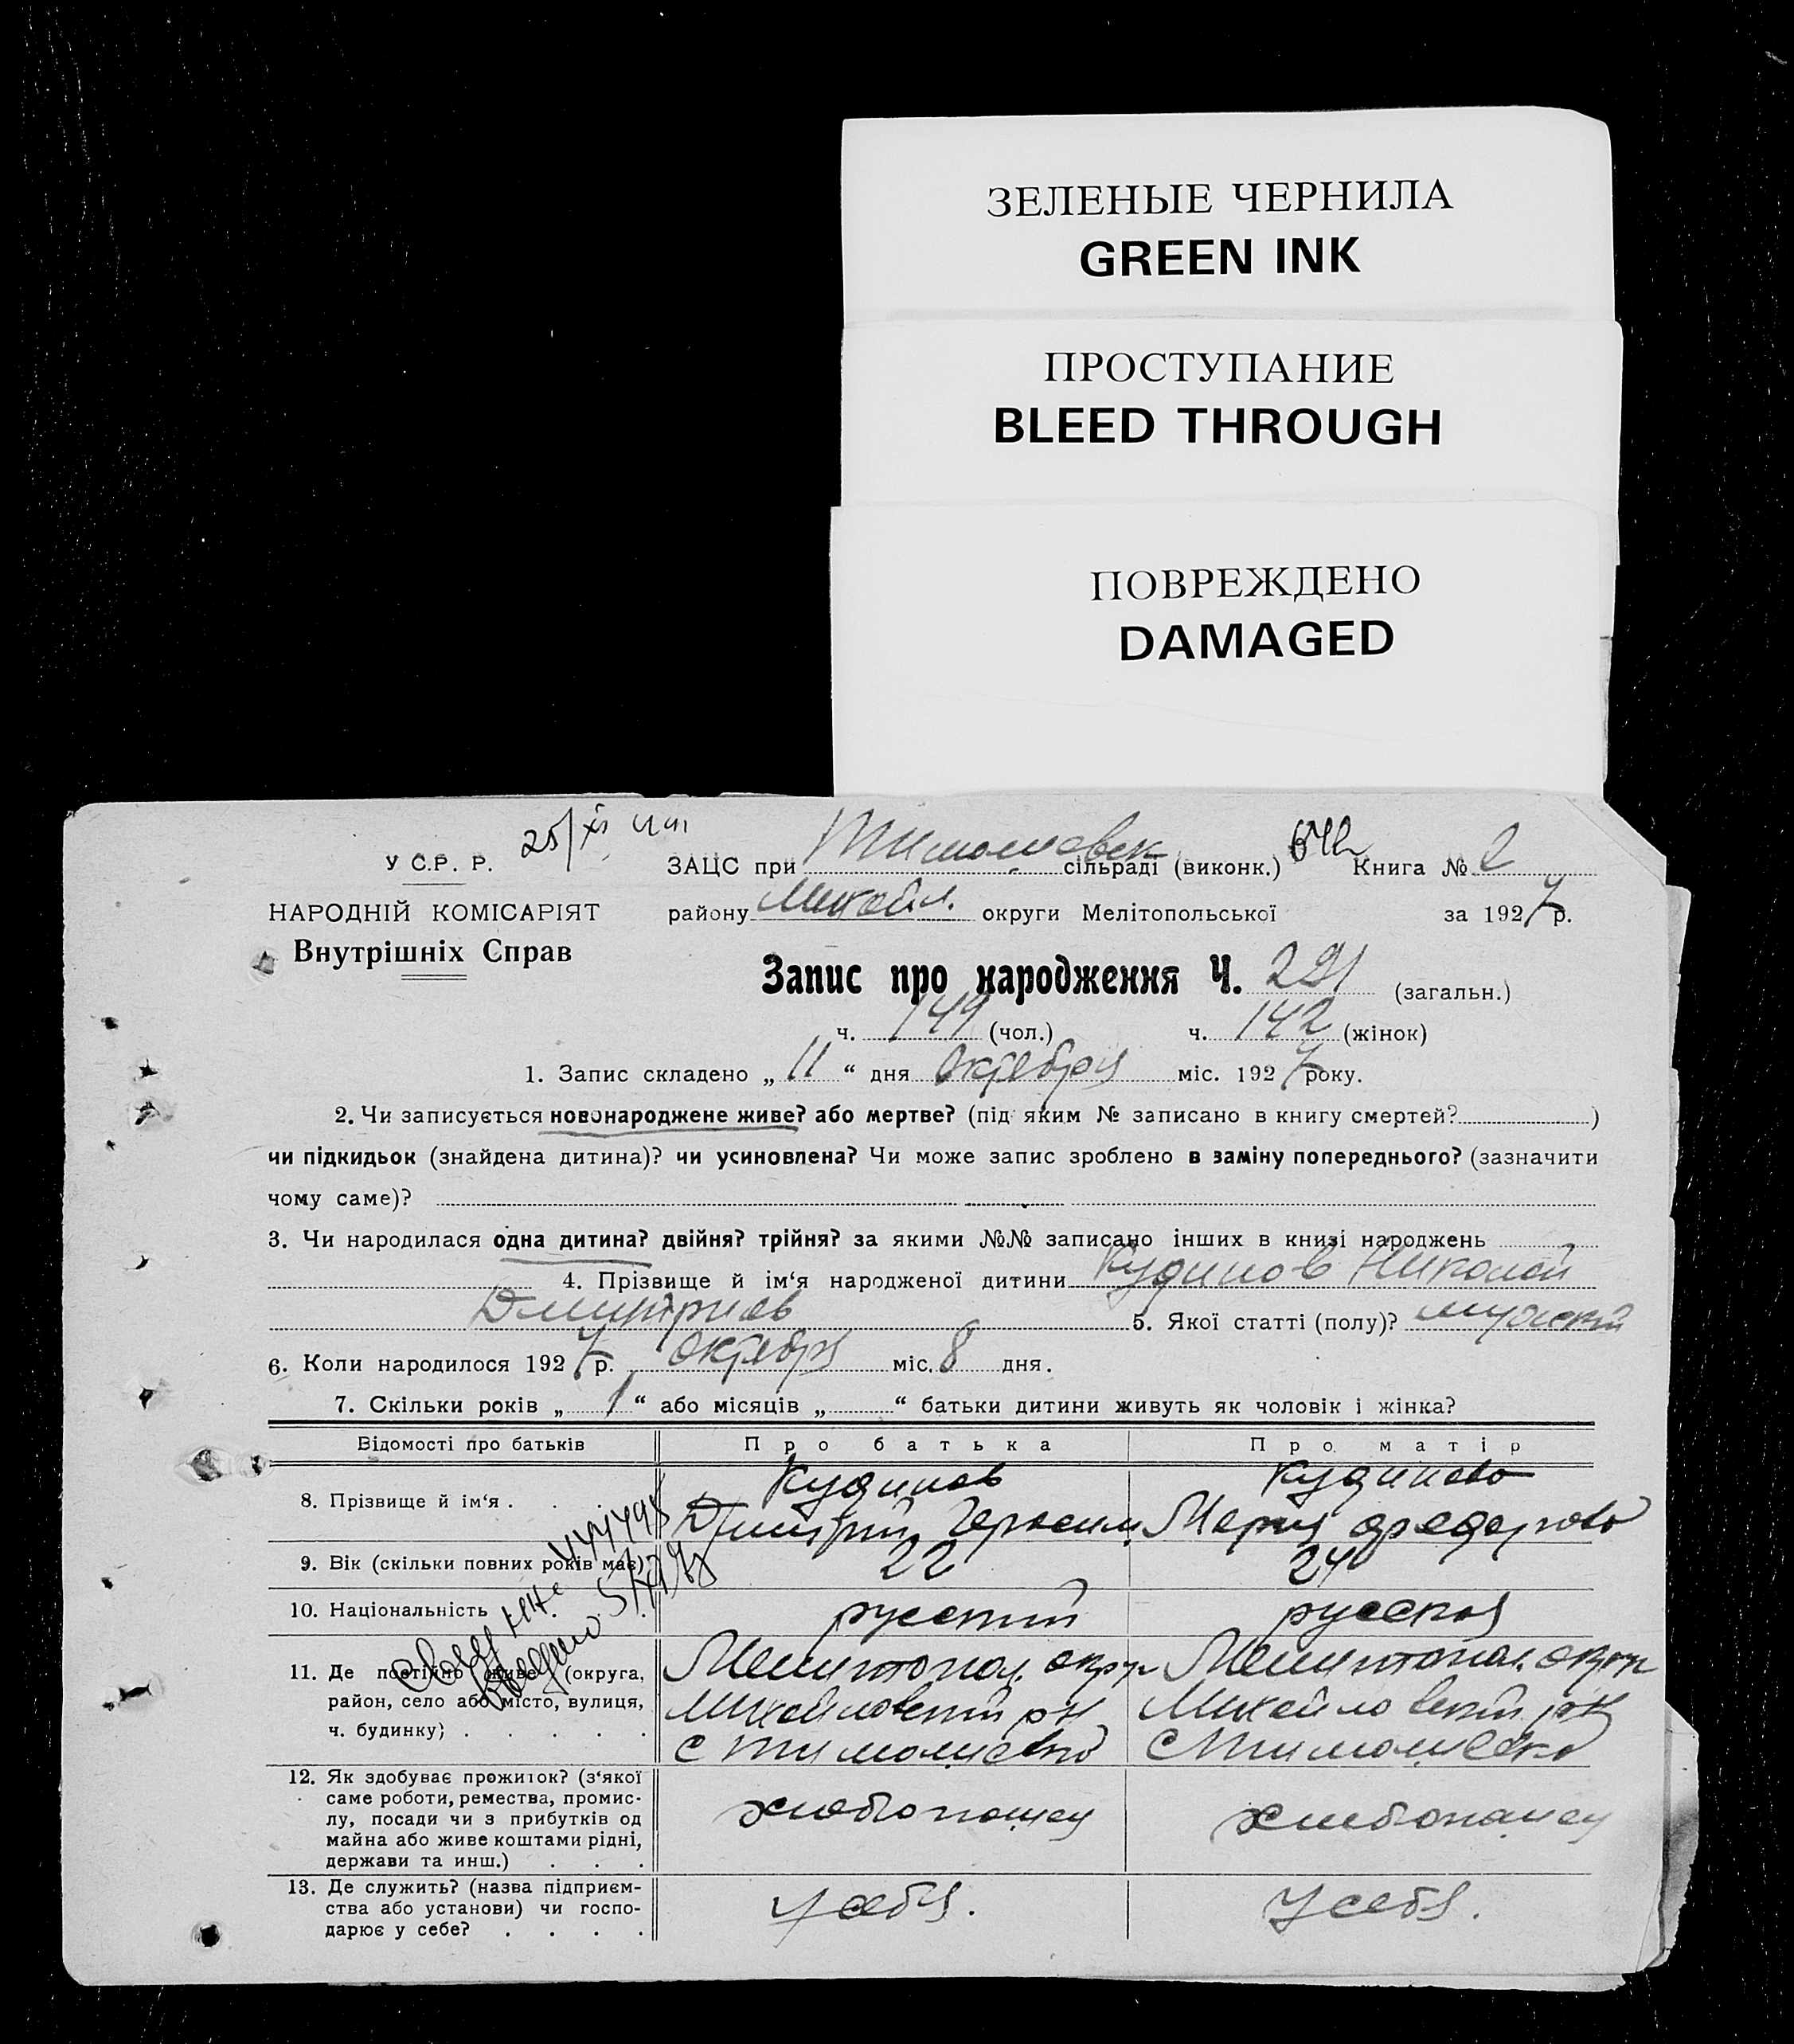 ЗЕЛЕНЫЕ ЧЕРНИЛА
GREEN INK
ПРОСТУПАНИЕ
BLEED THROUGH
ПОВРЕЖДЕНО
DAMAGED
У С.Р. Р.
25/XI
ЗАЦС при Тимошевск сільраді (виконк.) Книга № 2
НАРОДНІЙ КОМІСАРІЯТ
району Михайл. округи Мелітопольської за 1927 р.
Внутрішніх Справ
Запис про народження Ч. 291 (загальн.)
ч. 149 (чол.) ч. 142 (жінок)
1. Запис складено „ 11 “ дня Октября міс. 1927 року.
2. Чи записується новонароджене живе? або мертве? (під яким № записано в книгу смертей? )
чи підкидьок (знайдена дитина)? чи усиновлена? Чи може запис зроблено в заміну попереднього? (зазначити
чому саме)?
3. Чи народилася одна дитина? двійня? трійня? за якими №№ записано інших в книзі народжень
4. Прізвище й ім‘я народженої дитини Кудинов Николай
Дмитриев 5. Якої статті (полу)? мужской
6. Коли народилося 1927 р. октября міс. 8 дня.
7. Скільки років „ 1 “ або місяців „ “ батьки дитини живуть як чоловік і жінка?
Відомості про батьків Про батька Про матір
8. Прізвище й ім‘я . Кудинов Кудинова
Дмитрий Герасим. Мария Федорова
9. Вік (скільки повних років має) 22 24
10. Національність русский русская
11. Де постійно живе (округа, Мелитопол. окр Мелитопол. окр
район, село або місто, вулиця, Михайловский рн Михайловский рн
ч. будинку) . . . . . с Тимошевка с Тимошевка
12. Як здобуває прожиток? (з‘якої
саме роботи, ремества, промис-
лу, посади чи з прибутків од хлебопашец хлебопашец
майна або живе коштами рідні,
держави та инш.) . . .
13. Де служить? (назва підприєм-
ства або установи) чи госпо- у себя. у себя.
дарює у себе? . . . .